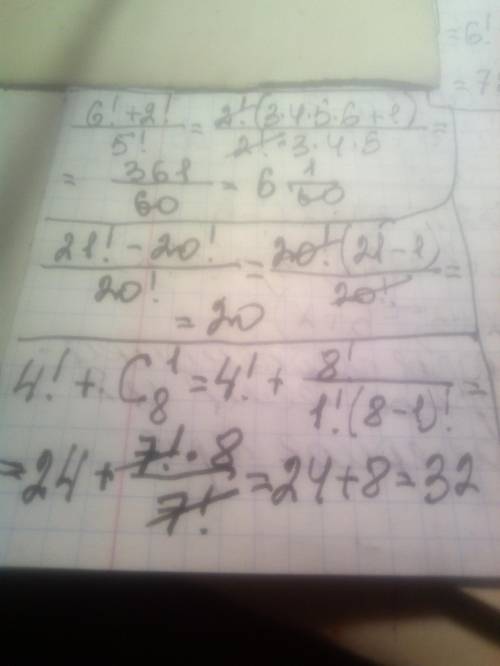 = 6!
= 7
(6! + 2!)/5! = 2!(3·4·5·6+1)/(2!·3·4·5) =
= 361/60 = 6 1/60
(21! - 20!)/20! = 20!(21-1)/20! =
= 20
4! + C₈¹ = 4! + 8!/(1!(8-1)!) =
= 24 + 7!·8/7! = 24+8=32